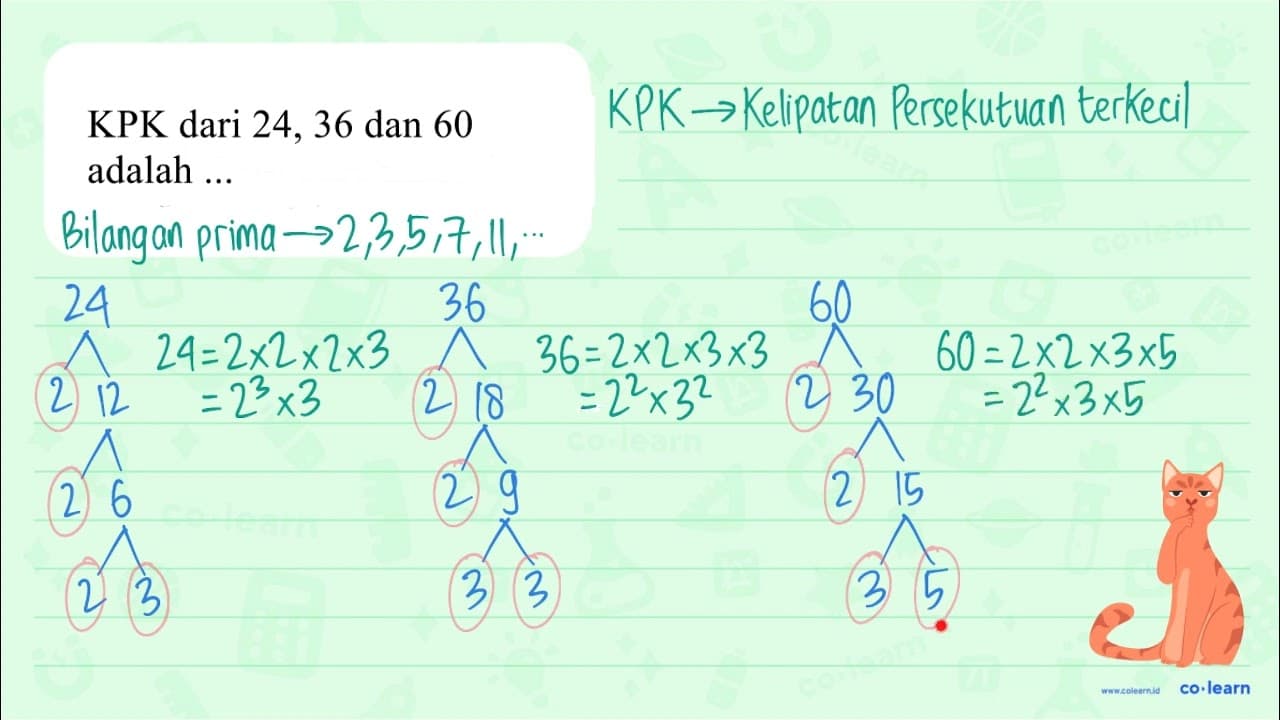 KPK dari 24, 36 dan 60
adalah ...
KPK → Kelipatan Persekutuan terkecil
Bilangan prima → 2,3,5,7,11,...
24
2 12
2 6
2 3
24=2×2×2×3
=2³×3
36
2 18
2 9
3 3
36=2×2×3×3
=2²×3²
60
2 30
2 15
3 5
60=2×2×3×5
=2²×3×5
co·learn
co·learn
co·learn
co·learn
co·learn
www.colearn.id co·learn